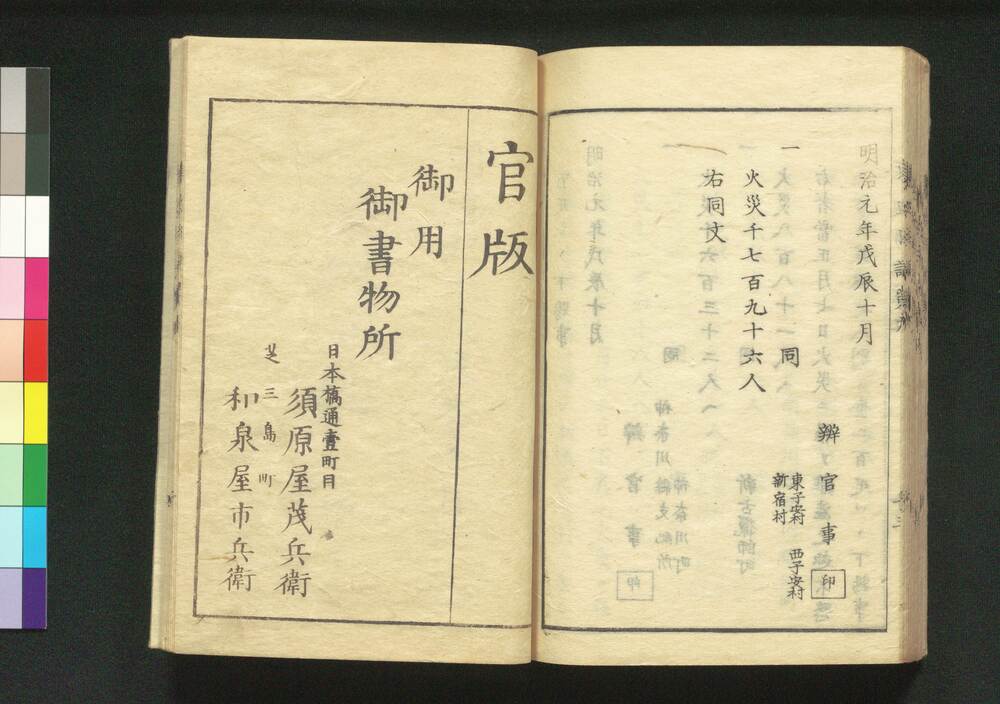 明治元年戊辰十月
辨官事 印
一
同
東子安村 西子安村
新宿村
火災千七百九十六人
右同文
官版
御用
御書物所
日本橋通壹町目
須原屋茂兵衛
芝三島町
和泉屋市兵衛